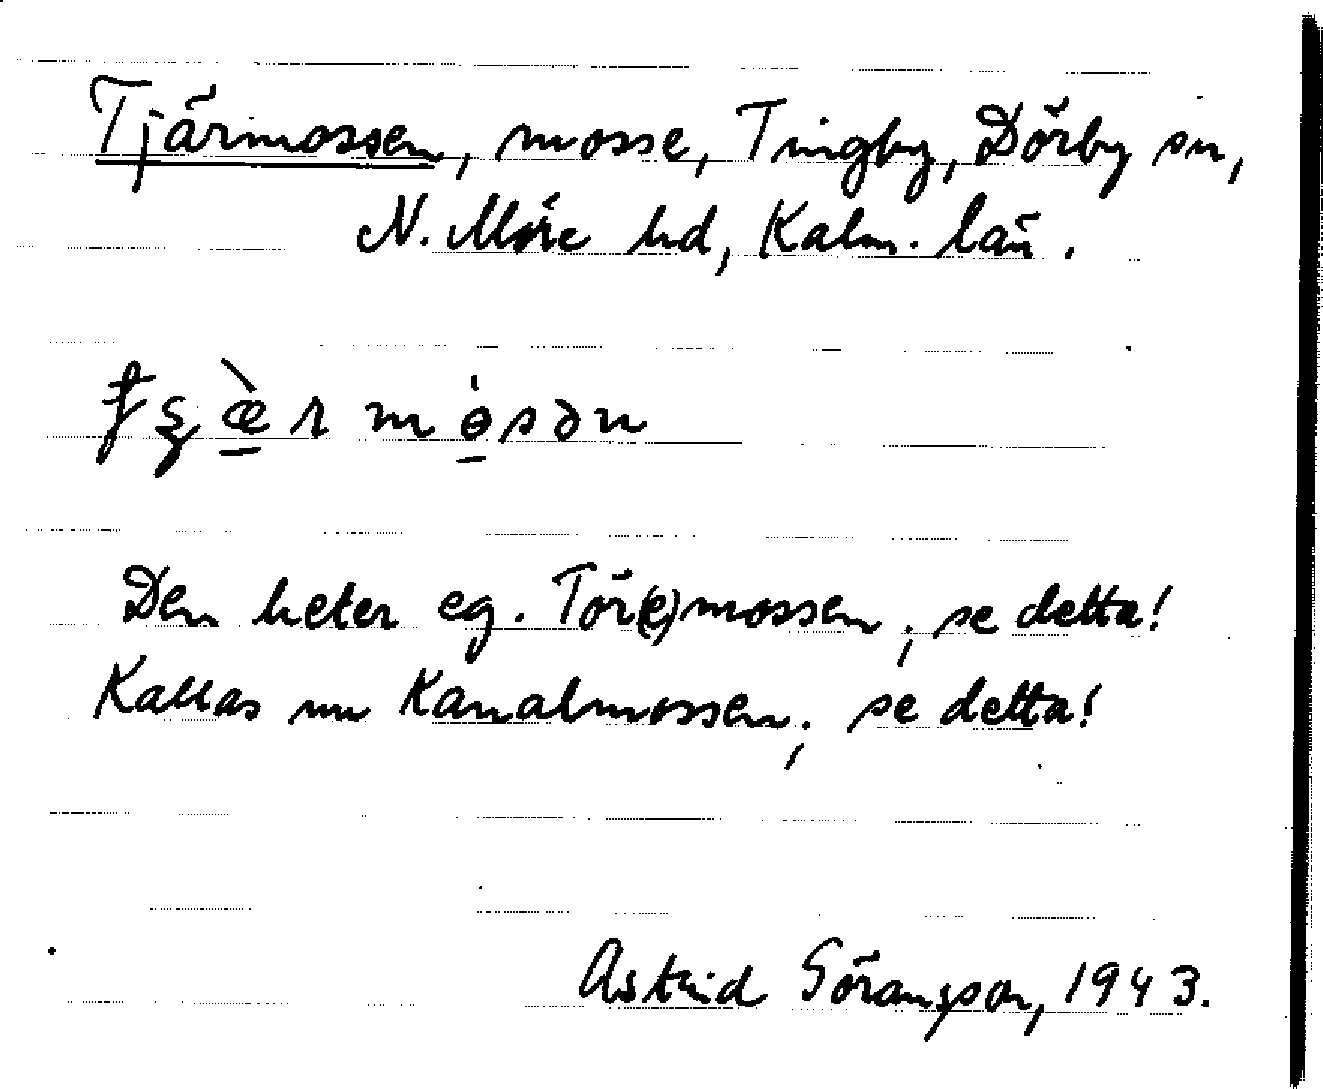 Tjärmossen, mosse, Tingby, Dörby sn,
N. Möre hd, Kalm. län.
Den heter eg. Tör(e)mossen; se detta!
Kallas nu Kanalmossen; se detta!
Astrid Göransson, 1943.